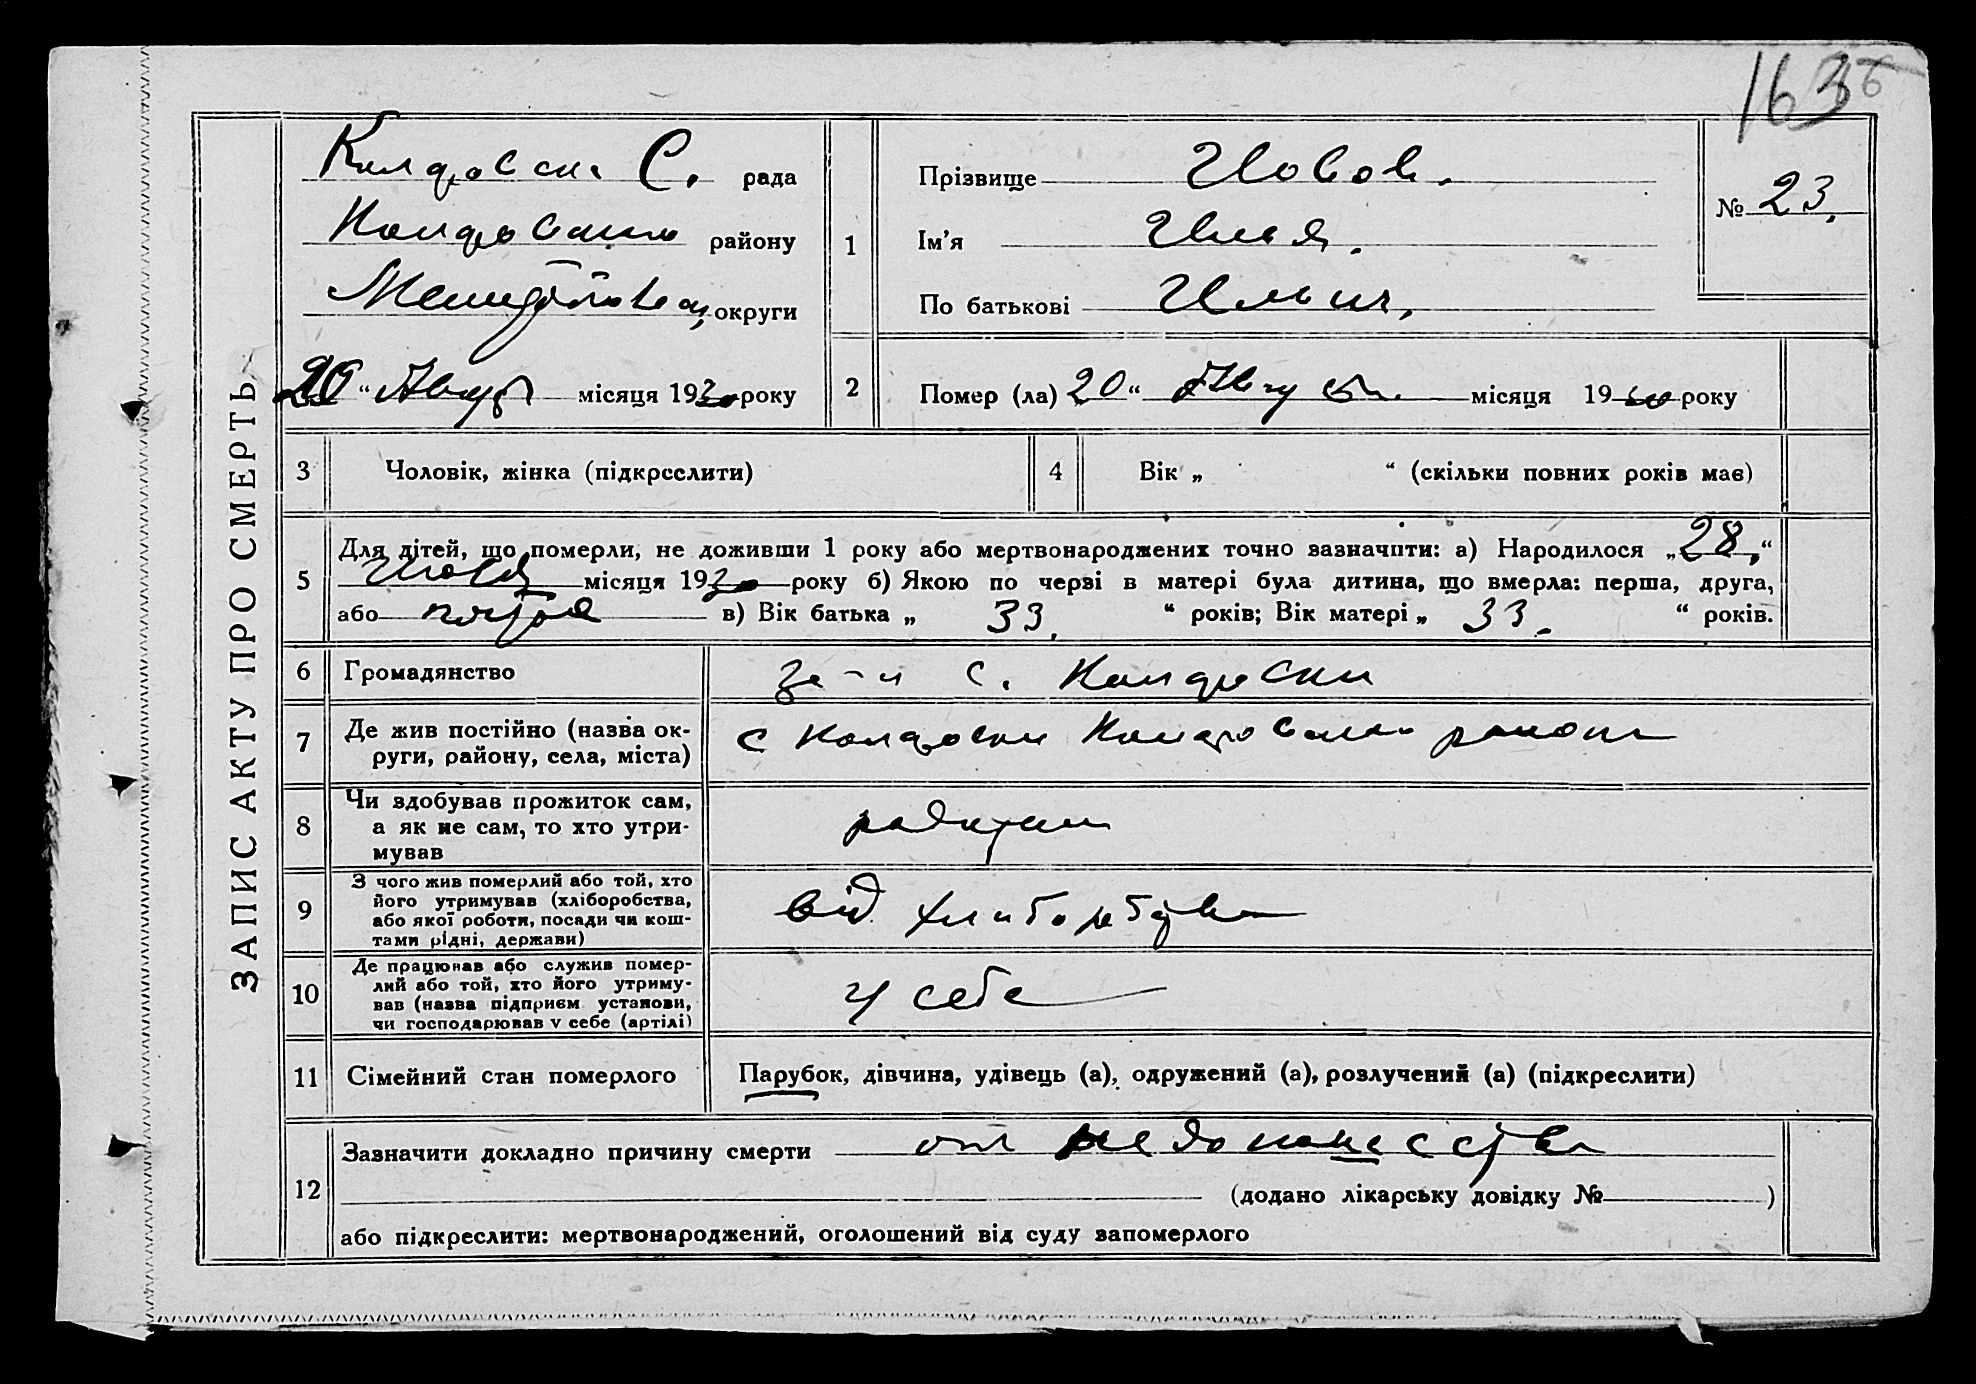 163
ЗАПИС АКТУ ПРО СМЕРТЬ
С. рада
району
округи
20 “ Август місяця 1930 року
1
Прізвище
Ім’я Илья.
По батькові Ильич.
№ 23.
2
Помер (ла) 20 “ Август. місяця 1930 року
3
Чоловік, жінка (підкреслити)
4
Вік „ “ (скільки повних років має)
5
Для дітей, що померли, не доживши 1 року або мертвонароджених точно зазначити: а) Народилося „28.“
Июля місяця 1930 року б) Якою по черзі в матері була дитина, що вмерла: перша, друга,
або пятая в) Вік батька „ 33. “ років; Вік матері „ 33. “ років.
6
Громадянство с.
7
Де жив постійно (назва ок-
руги, району, села, міста)
с района
8
Чи здобував прожиток сам,
а як не сам, то хто утри-
мував
9
З чого жив померлий або той, хто
його утримував (хліборобства,
або якої роботи, посади чи кош-
тами рідні, держави)
від
10
Де працював або служив помер-
лий або той, хто його утриму-
вав (назва підприєм. установи,
чи господарював у себе (артілі)
у себе
11
Сімейний стан померлого
Парубок, дівчина, удівець (а), одружений (а), розлучений (а) (підкреслити)
12
Зазначити докладно причину смерти от
(додано лікарську довідку № )
або підкреслити: мертвонароджений, оголошений від суду запомерлого